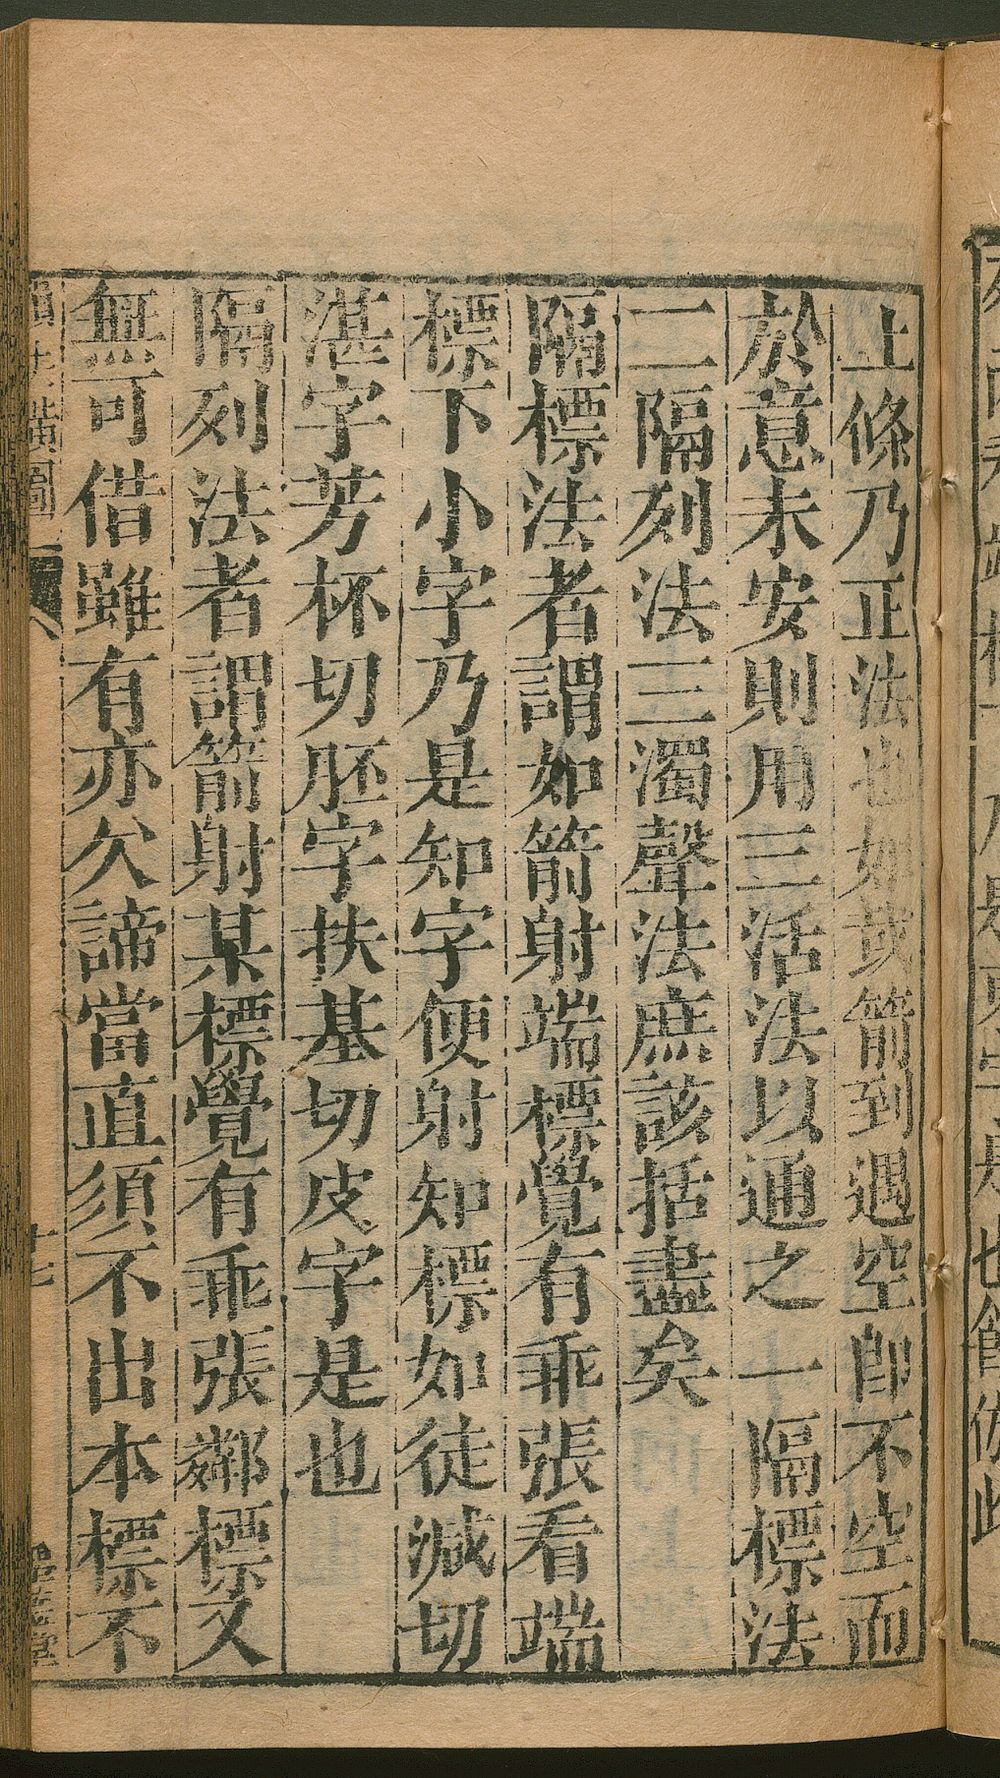 上條乃正法也如或箭到遇空即不空而
於意未安則用三活法以通之一隔標法
二隔列法三濁聲法庶該括盡矣
隔標法者謂如箭射端標覺有乖張看端
標下小字乃是知字便射知標如徒減切
湛字芳杯切胚字扶基切皮字是也
隔列法者謂箭射某標覺有乖張鄰標又
無可借雖有亦欠諦當直須不出本標不
橫圖